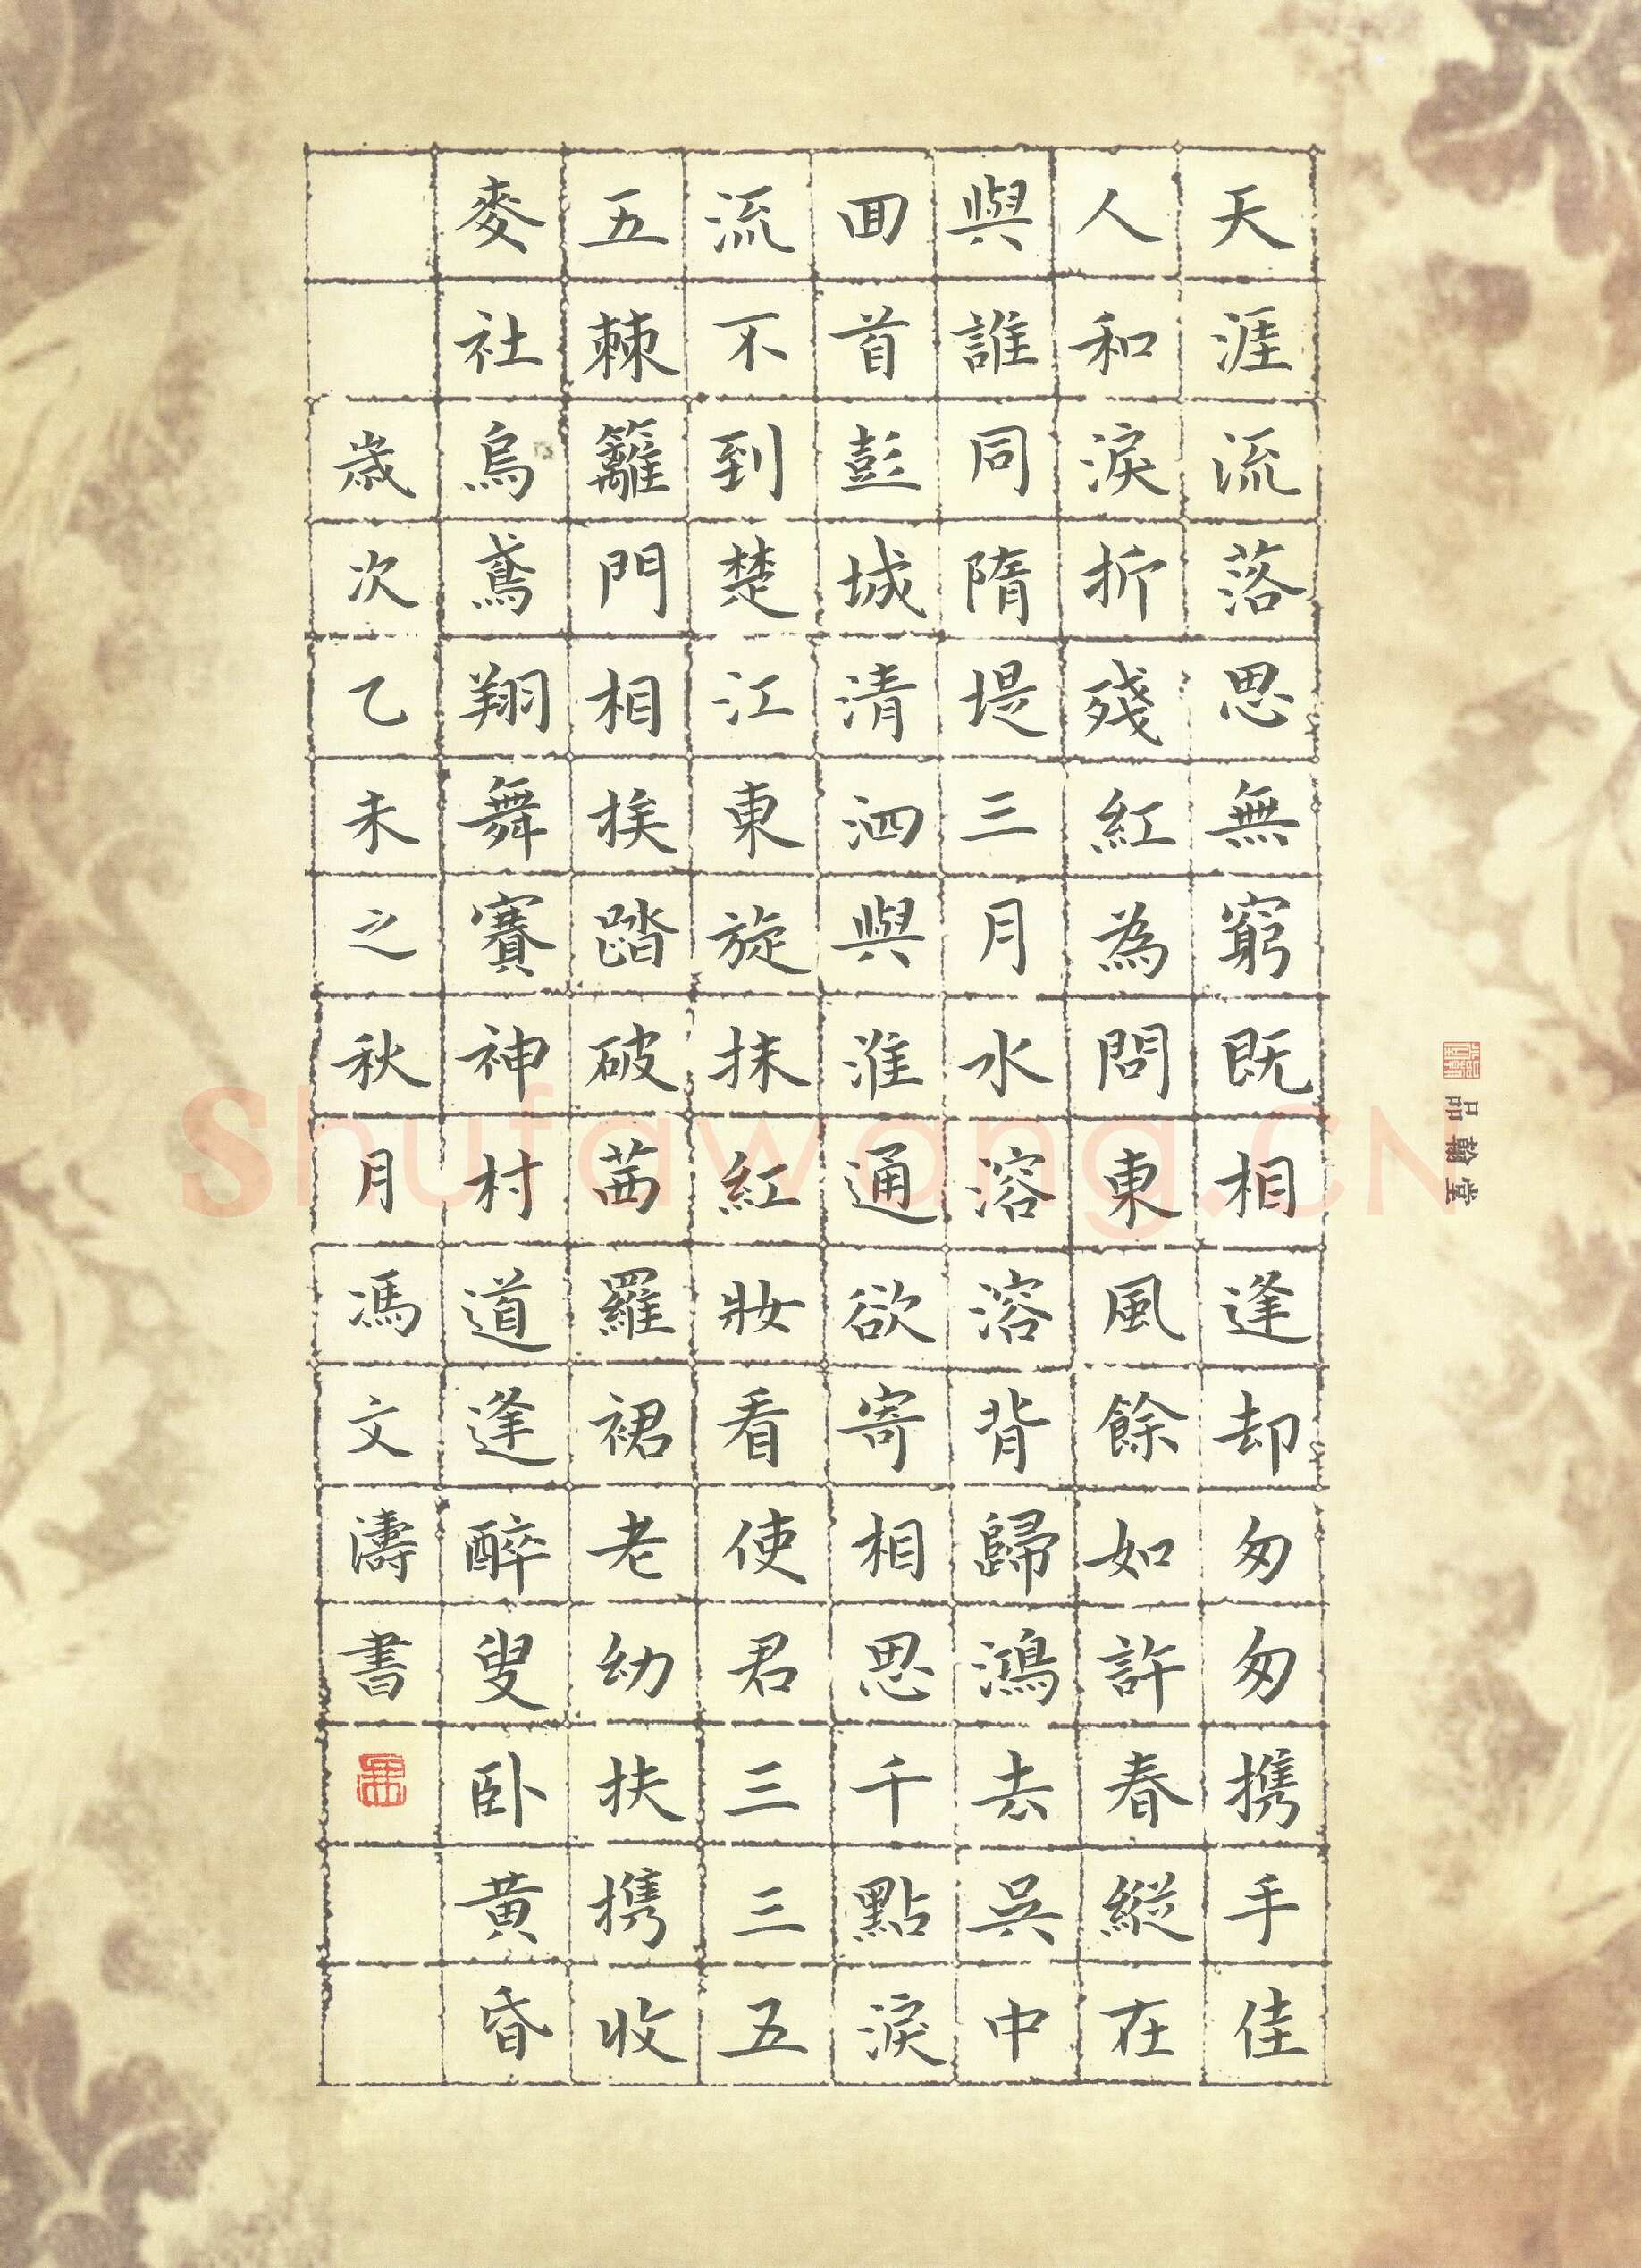 天涯流落思無窮既相逢却匆匆携手佳
人和淚折殘紅為問東風餘如許春縱在
與誰同隋堤三月水溶溶背歸鴻去吳中
囬首彭城清泗與淮通欲寄相思千點淚
流不到楚江東旋抹紅妝看使君三三五
五棘籬門相挨踏破茜羅裙老幼扶携收
麥社烏鳶翔舞賽神村道逢醉叟卧黄昏
歲次乙未之秋月馮文濤書
品翰堂
Shufawang.CN